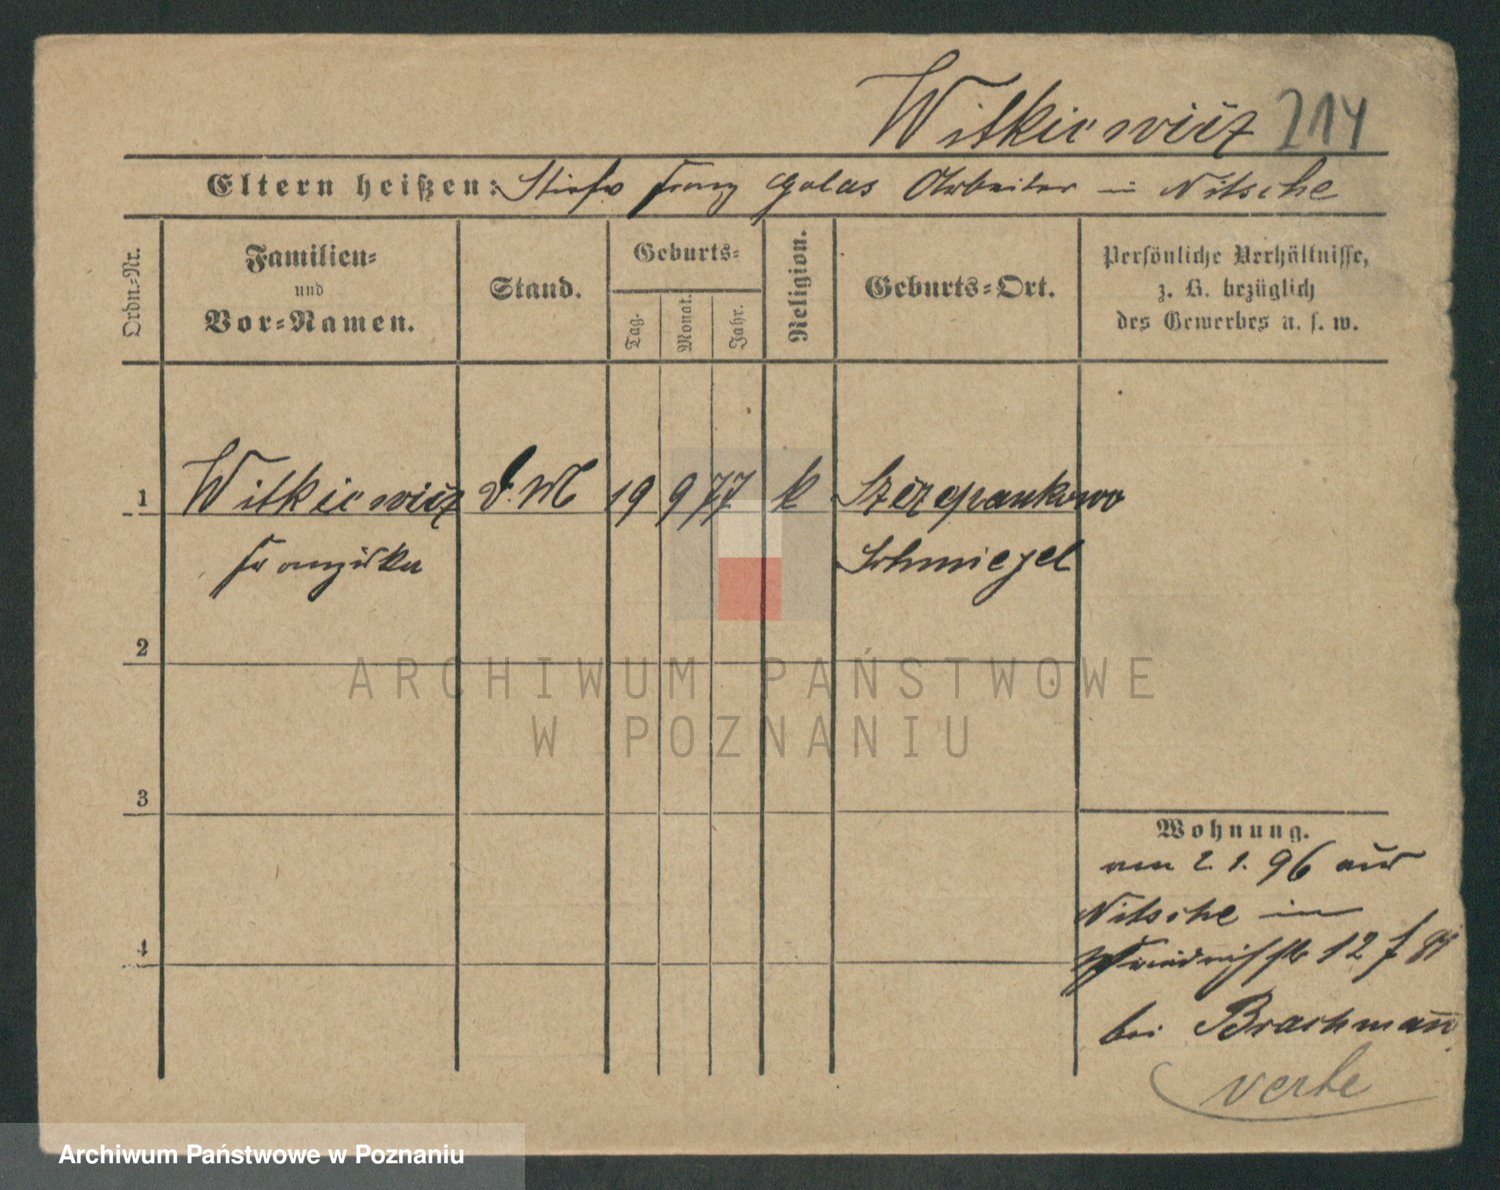 Witkiewicz 214
Eltern heißen: Stiefv Franz Galas Arbeiter in Nitsche
Ordn.-Nr.
Familien-
und
Vor-Namen.
Stand.
Geburts-
Tag.
Monat.
Jahr.
Religion.
Geburts-Ort.
Persönliche Verhältnisse,
z. B. bezüglich
des Gewerbes u. s. w.
1 Witkiewicz D. M 19 9 77 k Szczepankowo
Franziska Schmiegel
2
ARCHIWUM PAŃSTWOWE
W POZNANIU
3
Wohnung.
am 2. 1. 96 aus
Nitsche in
4
12
bei Brachmann
verte
Archiwum Państwowe w Poznaniu